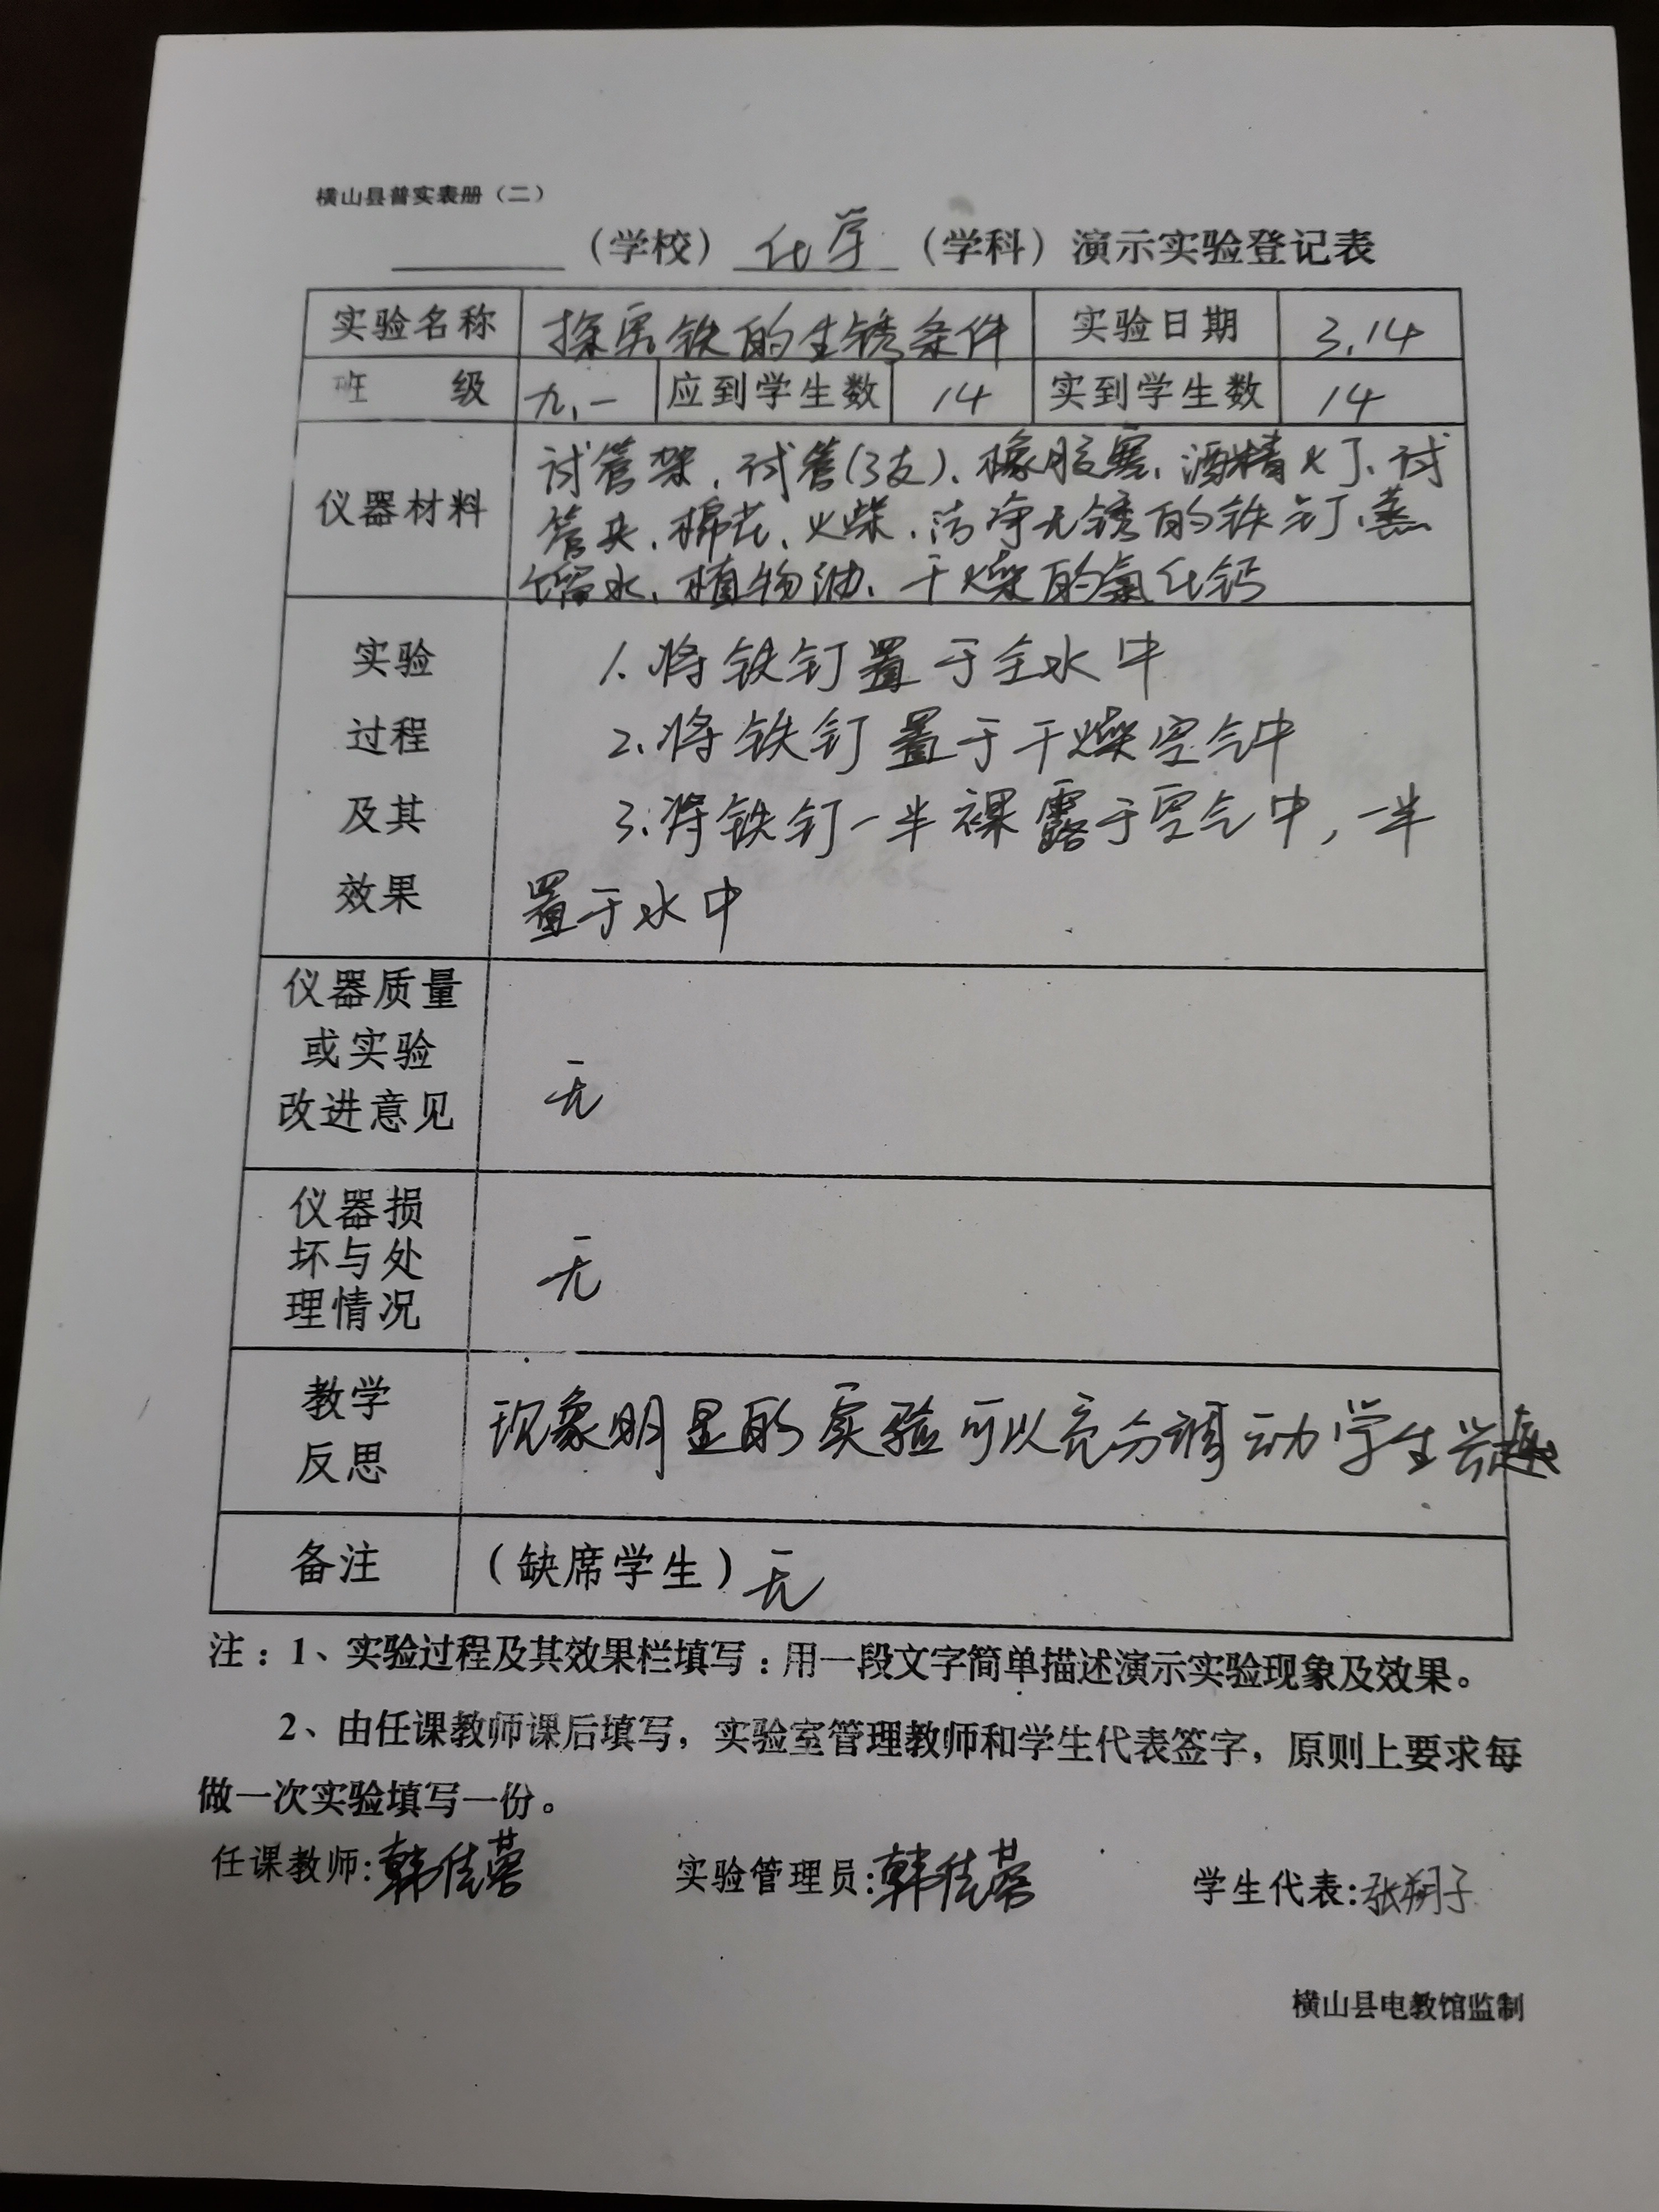 横山县普实表册（二）
（学校）化学（学科）演示实验登记表
实验名称 探究铁的生锈条件 实验日期 3.14
班 级 九.一 应到学生数 14 实到学生数 14
仪器材料
试管架、试管(3支)、橡胶塞、酒精灯、试
管夹、棉花、火柴、洁净无锈的铁钉、蒸
馏水、植物油、干燥的氯化钙
实验
过程
及其
效果
1.将铁钉置于全水中
2.将铁钉置于干燥空气中
3.将铁钉一半裸露于空气中，一半
置于水中
仪器质量
或实验
改进意见
无
仪器损
坏与处
理情况
无
教学
反思
现象明显的实验可以充分调动学生兴趣
备注 （缺席学生）无
注：1、实验过程及其效果栏填写：用一段文字简单描述演示实验现象及效果。
2、由任课教师课后填写，实验室管理教师和学生代表签字，原则上要求每
做一次实验填写一份。
任课教师:韩佳蓉 实验管理员:韩佳蓉 学生代表:张朔子
横山县电教馆监制